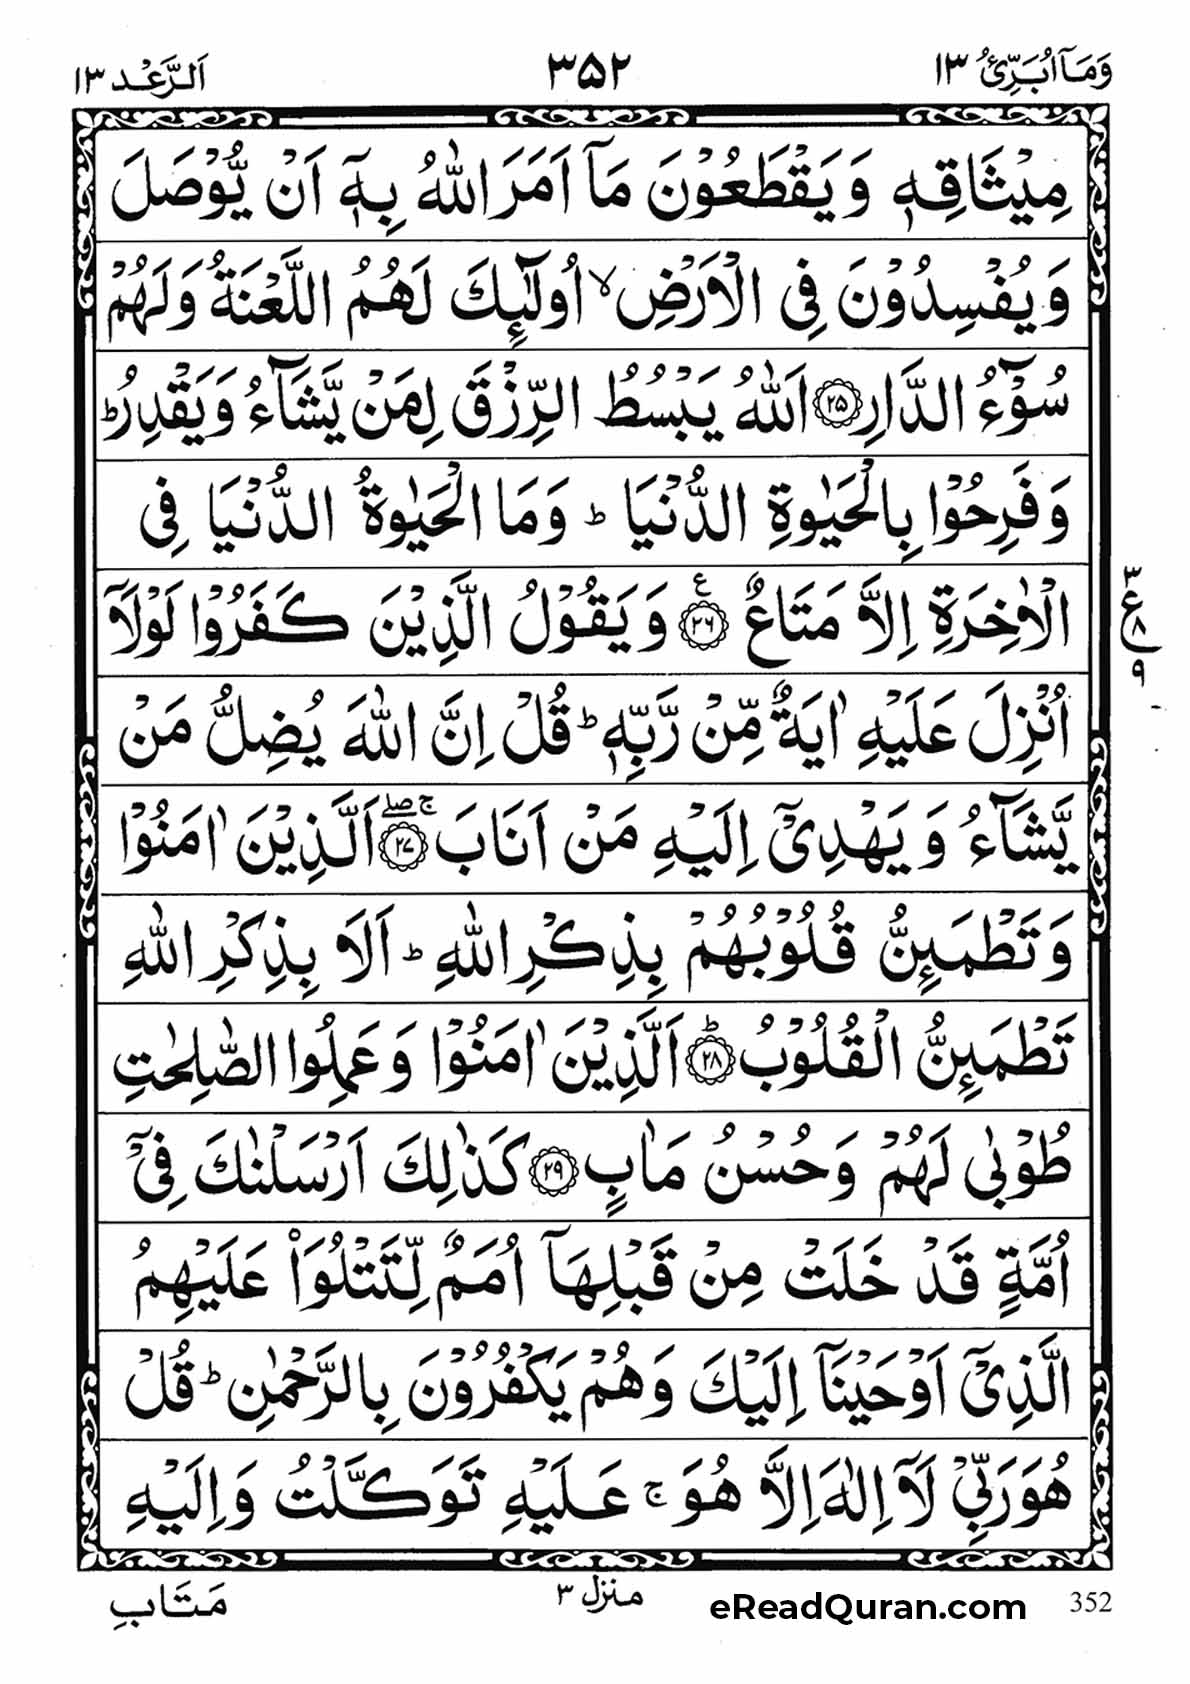 وَمَآ اُبَرِّئُ ١٣ ٣٥٢ اَلرَّعْد ١٣
مِيْثَاقِهٖ وَيَقْطَعُوْنَ مَآ اَمَرَ اللّٰهُ بِهٖٓ اَنْ يُّوْصَلَ
وَيُفْسِدُوْنَ فِى الْاَرْضِ ۙ اُولٰٓئِكَ لَهُمُ اللَّعْنَةُ وَلَهُمْ
سُوْٓءُ الدَّارِ ﴿٢٥﴾ اَللّٰهُ يَبْسُطُ الرِّزْقَ لِمَنْ يَّشَآءُ وَيَقْدِرُ ؕ
وَفَرِحُوْا بِالْحَيٰوةِ الدُّنْيَا ؕ وَمَا الْحَيٰوةُ الدُّنْيَا فِى
الْاٰخِرَةِ اِلَّا مَتَاعٌ ﴿٢٦﴾ ع وَيَقُوْلُ الَّذِيْنَ كَفَرُوْا لَوْلَآ
٣
ع
٨
٩
اُنْزِلَ عَلَيْهِ اٰيَةٌ مِّنْ رَّبِّهٖ ؕ قُلْ اِنَّ اللّٰهَ يُضِلُّ مَنْ
يَّشَآءُ وَيَهْدِىْٓ اِلَيْهِ مَنْ اَنَابَ ﴿٢٧﴾ ج صلے اَلَّذِيْنَ اٰمَنُوْا
وَتَطْمَئِنُّ قُلُوْبُهُمْ بِذِكْرِ اللّٰهِ ؕ اَلَا بِذِكْرِ اللّٰهِ
تَطْمَئِنُّ الْقُلُوْبُ ﴿٢٨﴾ ؕ اَلَّذِيْنَ اٰمَنُوْا وَعَمِلُوا الصّٰلِحٰتِ
طُوْبٰى لَهُمْ وَحُسْنُ مَاٰبٍ ﴿٢٩﴾ كَذٰلِكَ اَرْسَلْنٰكَ فِىْٓ
اُمَّةٍ قَدْ خَلَتْ مِنْ قَبْلِهَآ اُمَمٌ لِّتَتْلُوَا۟ عَلَيْهِمُ
الَّذِىْٓ اَوْحَيْنَآ اِلَيْكَ وَهُمْ يَكْفُرُوْنَ بِالرَّحْمٰنِ ؕ قُلْ
هُوَ رَبِّىْ لَآ اِلٰهَ اِلَّا هُوَ ۚ عَلَيْهِ تَوَكَّلْتُ وَاِلَيْهِ
مَتَابِ
منزل ٣
eReadQuran.com
352